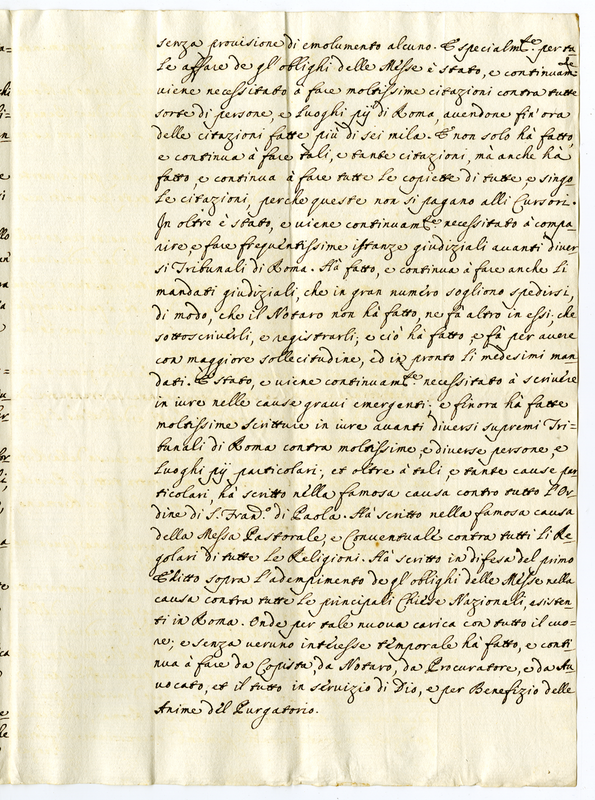 senza provisione di emolumento alcuno. E specialm.te per ta
le affare de gl'oblighi delle Messe è stato, e continuam.te
viene necessitato à fare moltissime citazioni contra tutte
sorte di persone, e Luoghi pij di Roma, avendone fin'ora
delle citazioni fatte più di sei mila. E non solo hà fatto,
e continua à fare tali, e tante citazioni, mà anche hà
fatto, e continua à fare tutte le copiette di tutte, e singo
le citazioni, perche queste non si pagano alli Cursori.
In oltre è stato, e viene continuam.te necessitato à compa
rire, e fare frequentissime istanze giudiziali avanti diver
si Tribunali di Roma. Hà fatto, e continua à fare anche li
mandati giudiziali, che in gran numero sogliono spedirsi,
di modo, che il Notaro non hà fatto, ne fà altro in essi, che
sottoscriverli, e registrarli; e ciò hà fatto, e fà per avere
con maggiore sollecitudine, ed in pronto li medesimi man
dati. È stato, e viene continuam.te necessitato à scrivere
in iure nelle cause gravi emergenti; e finora hà fatte
moltissime scritture in iure avanti diversi supremi Tri=
bunali di Roma contra moltissime, e diverse persone, e
Luoghi pij particolari; et oltre à tali, e tante cause par
ticolari, hà scritto nella famosa causa contro tutto l'Or=
dine di S. Fran.o di Paola. Hà scritto nella famosa causa
della Messa Pastorale, e Conventuale contra tutti li Re
golari di tutte le Religioni. Hà scritto in difesa del primo
Editto sopra l'adempimento de gl'oblighi delle Messe nella
causa contra tutte le principali Chiese Nazionali, esisten
ti in Roma. Onde per tale nuova carica con tutto il cuo=
re; e senza veruno interesse temporale hà fatto, e conti
nua à fare da Copista, da Notaro, da Procuratore, e da Av
vocato, et il tutto in servizio di Dio, e per Benefizio delle
Anime del Purgatorio.